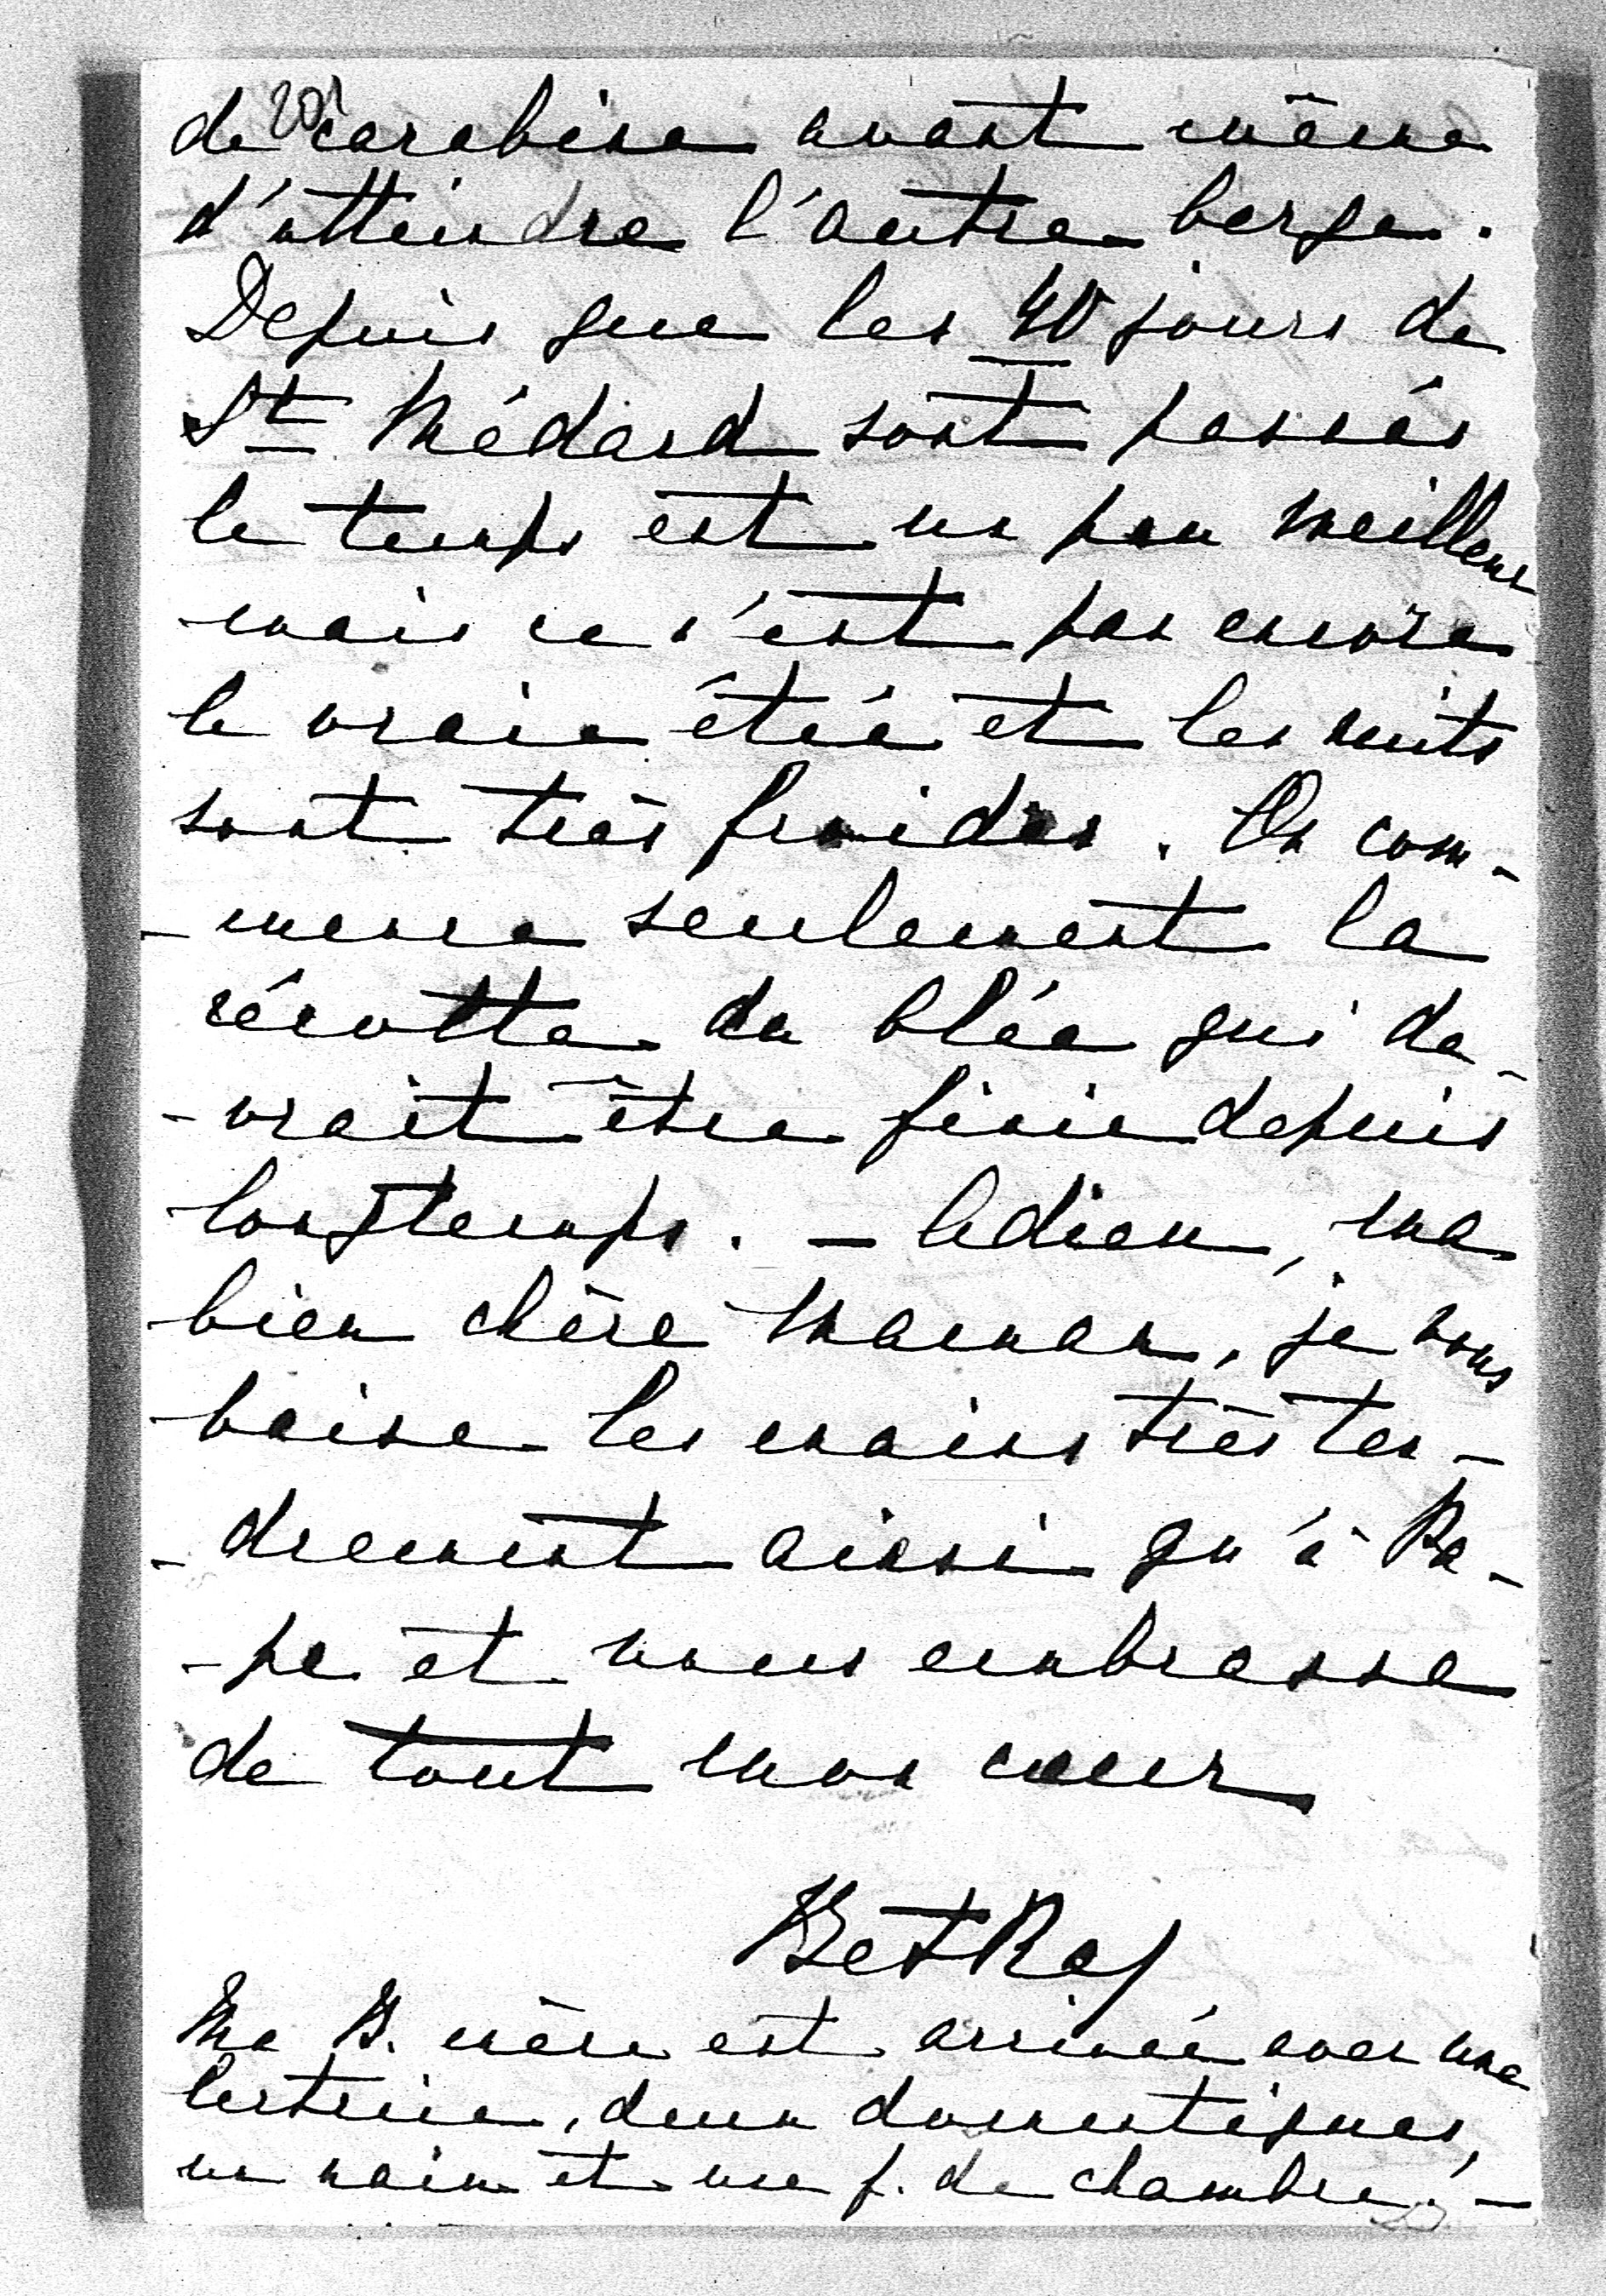 201
de carabine avant même
d'atteindre l'autre berge.
Depuis que les 40 jours de
St Médard sont passés
le temps est un peu meilleur
mais ce n'est pas encore
le vraie été et les nuits
sont très froides. On com-
-mence seulement la
récolte du blée qui de-
-vrait être finie depuis
longtemps. - Adieu, ma
bien chère Maman, je vous
baise les mains très ten-
-drement ainsi qu'à Pa-
-pa et vous embrasse
de tout mon cœur
Ma B. mère est arrivée avec une
lectrice, deux domestiques,
un nain et une f. de chambre. -